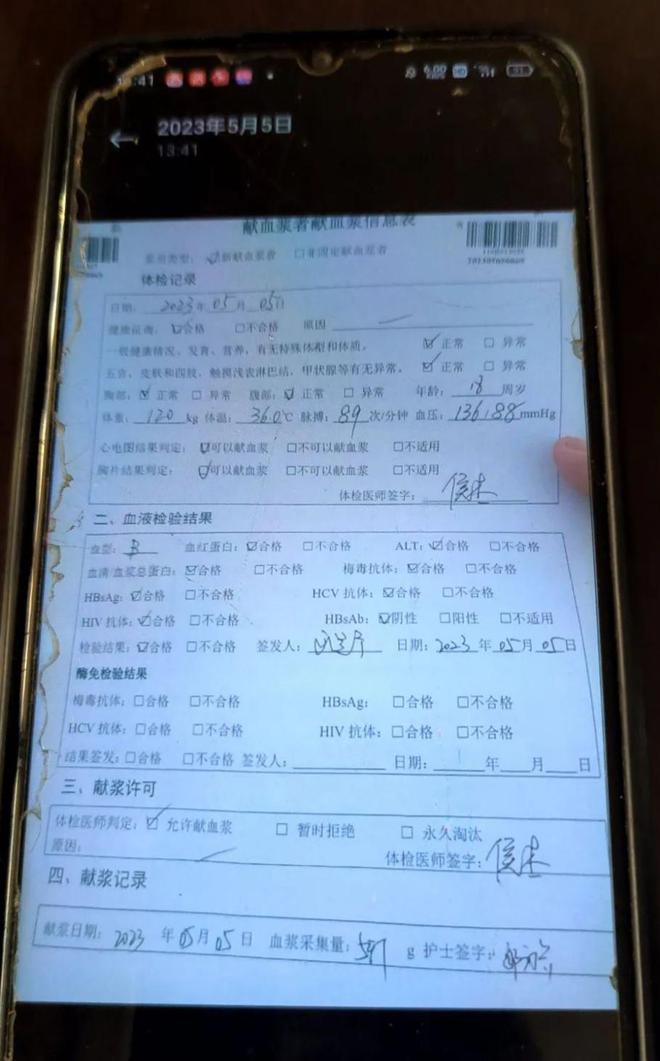 2023年5月5日
13:41
献血浆者献血浆信息表
☑新献血浆者 □非固定献血浆者
体检记录
日期: 2023年 05月 05日
健康征询: ☑合格 □不合格 原因
一般健康情况、发育、营养,有无特殊体型和体质。 ☑正常 □异常
五官、皮肤和四肢,触摸浅表淋巴结,甲状腺等有无异常。 ☑正常 □异常
胸部: ☑正常 □异常 腹部: ☑正常 □异常 年龄: 18 周岁
体重: 120 kg 体温: 36.0 ℃ 脉搏: 89 次/分钟 血压: 136/88 mmHg
心电图结果判定: ☑可以献血浆 □不可以献血浆 □不适用
胸片结果判定: ☑可以献血浆 □不可以献血浆 □不适用
体检医师签字:
二、血液检验结果
血型: B 血红蛋白: ☑合格 □不合格 ALT: ☑合格 □不合格
血清/血浆总蛋白: ☑合格 □不合格 梅毒抗体: ☑合格 □不合格
HBsAg: ☑合格 □不合格 HCV 抗体: ☑合格 □不合格
HIV 抗体: ☑合格 □不合格 HBsAb: ☑阴性 □阳性 □不适用
检验结果: ☑合格 □不合格 签发人: 日期: 2023 年 05 月 05 日
酶免检验结果
梅毒抗体: □合格 □不合格 HBsAg: □合格 □不合格
HCV 抗体: □合格 □不合格 HIV 抗体: □合格 □不合格
结果签发: □合格 □不合格 签发人: 日期: 年 月 日
三、献浆许可
体检医师判定: ☑ 允许献血浆 □ 暂时拒绝 □ 永久淘汰
原因: 体检医师签字:
四、献浆记录
献浆日期: 2023 年 05 月 05 日 血浆采集量: g 护士签字: